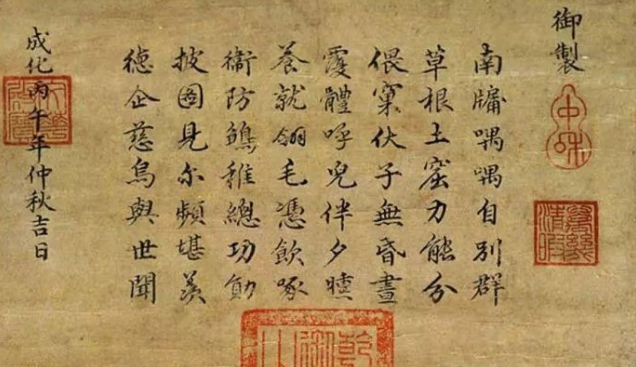 御製
南牖喁喁自別群
草根土窟力能分
偎窠伏子無昏晝
覆體呼兒伴夕曛
養就翎毛憑飲啄
衞防鶵稚總功勛
披圖見尔頻堪羨
德企慈烏與世聞
成化丙午年仲秋吉日